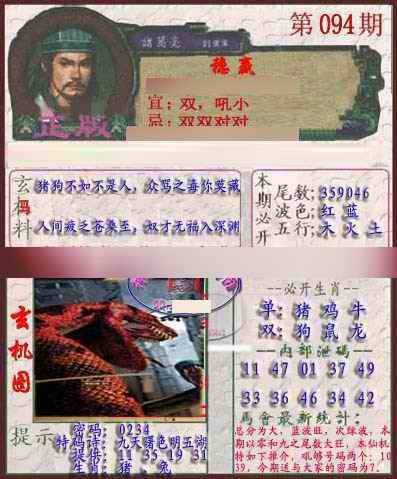 第094期
諸葛亮
穩贏
宜：双，吼小
忌：双双对对
正版
玄机料
猪狗不如不是人，众骂之毒你莫藏
人间疲之苍桑至，奴才无福入深渊
本期必开
尾数:359046
波色:红 蓝
五行:木 火 土
玄机图
--必开生肖--
单: 猪 鸡 牛
双: 狗 鼠 龙
--内部泄码--
11 47 01 37 49
33 36 46 34 42
馬會最新統計:
总分为大，蓝波旺，次绿波，本
期以零和九之尾数大旺，本仙机
特如下禅介，吼够号码两个: 10
39，今期送与大家的密码为7.
提示
密码: 0234
特码诗: 九天曙色明五湖
提供: 11 35 19 31
生肖: 猪、兔